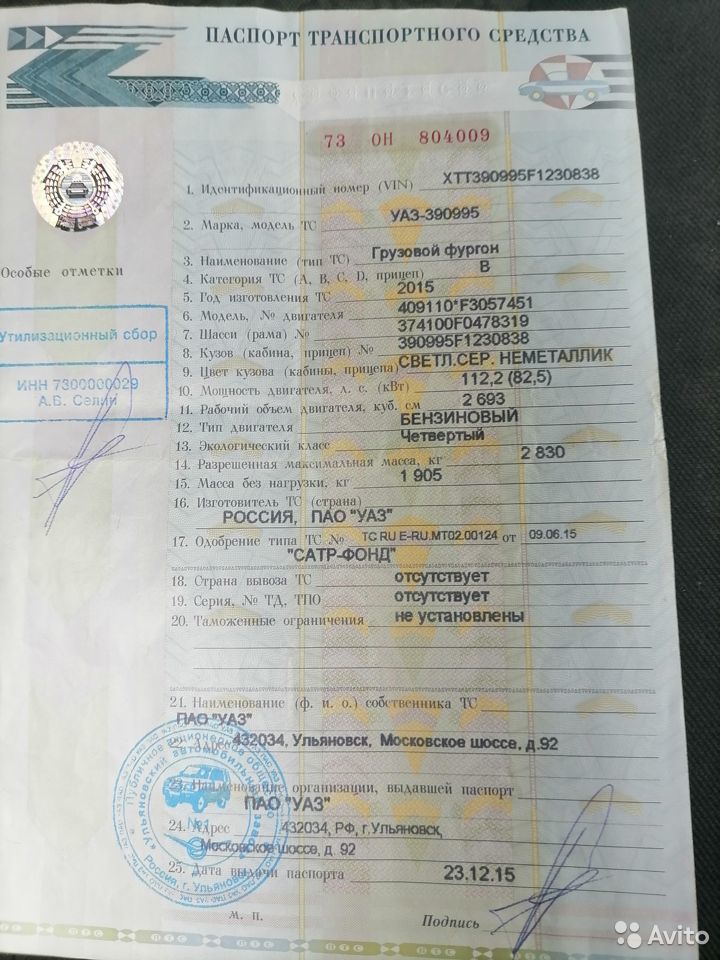 ПАСПОРТ ТРАНСПОРТНОГО СРЕДСТВА
73 ОН 804009
1. Идентификационный номер (VIN) XTT390995F1230838
2. Марка, модель ТС УАЗ-390995
3. Наименование (тип ТС) Грузовой фургон
Особые отметки
4. Категория ТС (A, B, C, D, прицеп) B
5. Год изготовления ТС 2015
6. Модель, № двигателя 409110*F3057451
7. Шасси (рама) № 374100F0478319
8. Кузов (кабина, прицеп) № 390995F1230838
9. Цвет кузова (кабины, прицепа) СВЕТЛ.СЕР. НЕМЕТАЛЛИК
10. Мощность двигателя, л. с. (кВт) 112,2 (82,5)
11. Рабочий объем двигателя, куб. см 2 693
12. Тип двигателя БЕНЗИНОВЫЙ
13. Экологический класс Четвертый
14. Разрешенная максимальная масса, кг 2 830
15. Масса без нагрузки, кг 1 905
16. Изготовитель ТС (страна)
РОССИЯ, ПАО "УАЗ"
17. Одобрение типа ТС № ТС RU E-RU.MT02.00124 от 09.06.15
"САТР-ФОНД"
18. Страна вывоза ТС отсутствует
19. Серия, № ТД, ТПО отсутствует
20. Таможенные ограничения не установлены
21. Наименование (ф. и. о.) собственника ТС
ПАО "УАЗ"
22. Адрес 432034, Ульяновск, Московское шоссе, д.92
23. Наименование организации, выдавшей паспорт
ПАО "УАЗ"
24. Адрес 432034, РФ, г.Ульяновск,
Московское шоссе, д. 92
25. Дата выдачи паспорта 23.12.15
м. п. Подпись
Утилизационный сбор
ИНН 7300000029
А.В. Селин
Публичное акционерное общество
"Ульяновский автомобильный завод"
Россия, г. Ульяновск
№1
ПТС
Avito